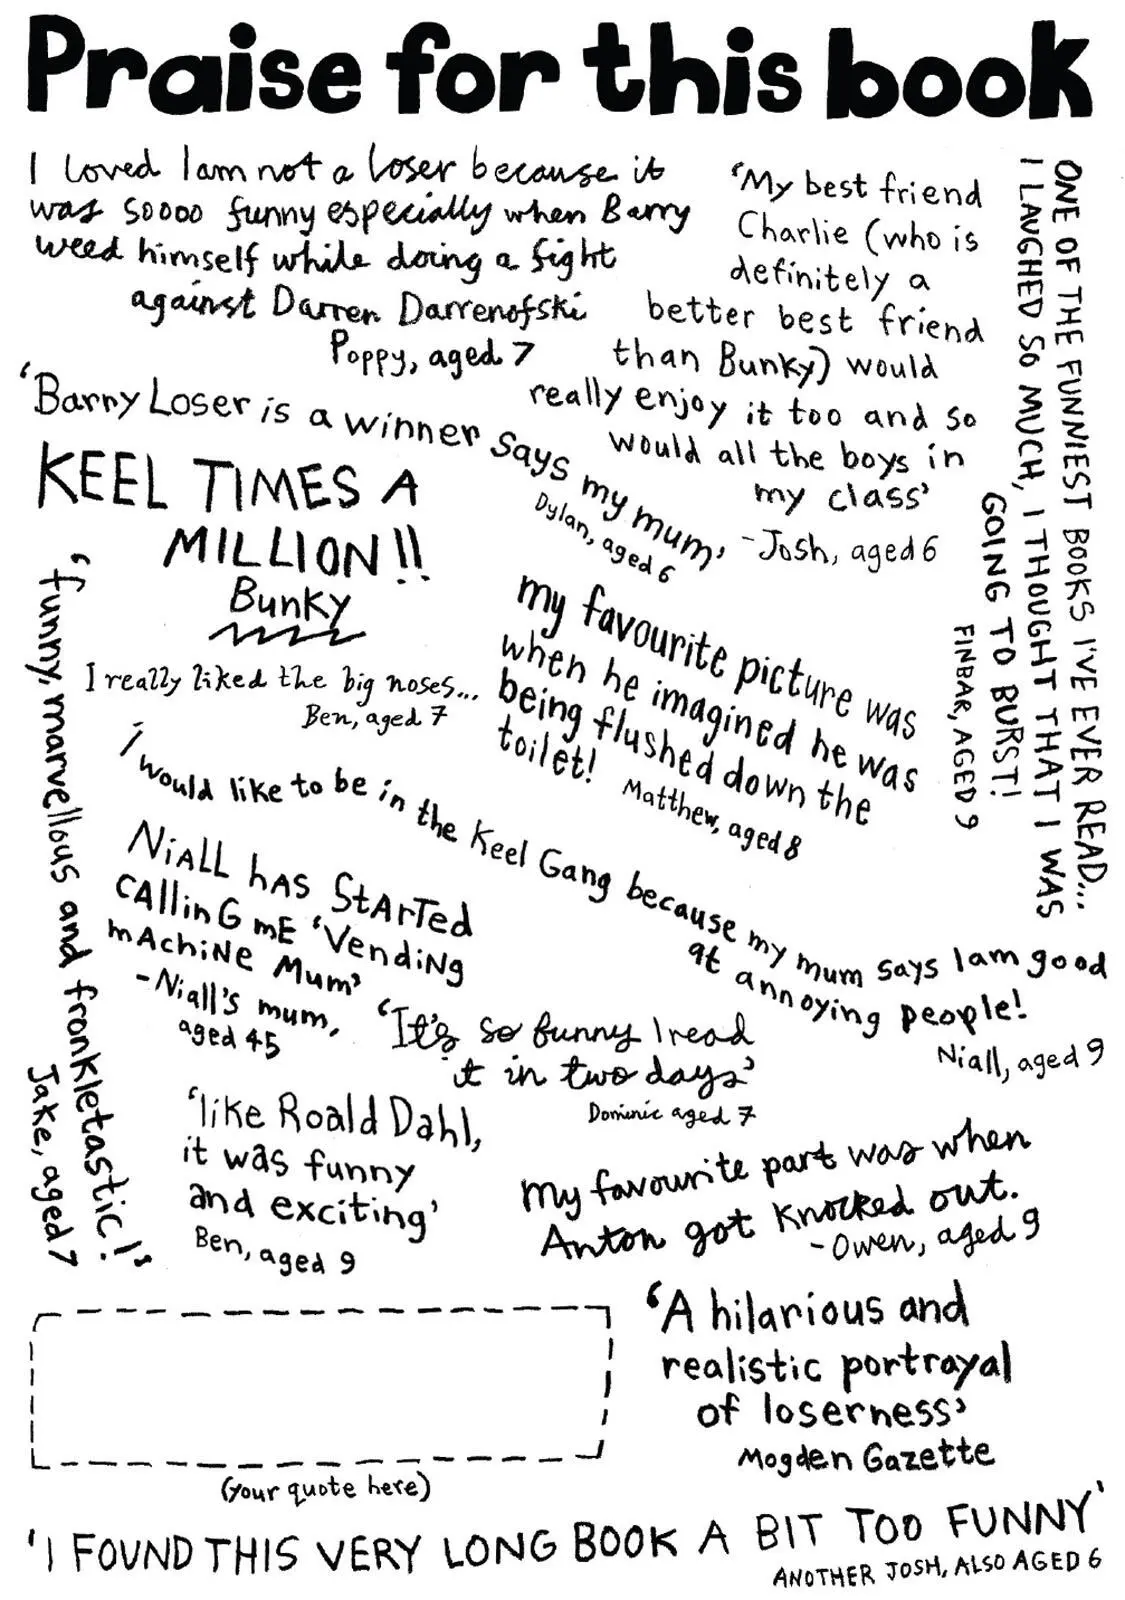 Praise for this book
I loved I am not a loser because it
was soooo funny especially when Barry
weed himself while doing a fight
against Darren Darrenofski
Poppy, aged 7
'My best friend
Charlie (who is
definitely a
better best friend
than Bunky) would
really enjoy it too and so
would all the boys in
my class'
-Josh, aged 6
ONE OF THE FUNNIEST BOOKS I'VE EVER READ...
I LAUGHED SO MUCH, I THOUGHT THAT I WAS
GOING TO BURST!
FINBAR, AGED 9
'Barry Loser is a winner says my mum'
Dylan, aged 6
KEEL TIMES A
MILLION!!
Bunky
'funny, marvellous and fronkletastic!'
Jake, aged 7
I really liked the big noses...
Ben, aged 7
my favourite picture was
when he imagined he was
being flushed down the
toilet!
Matthew, aged 8
i would like to be in the Keel Gang because my mum says I am good
at annoying people!
Niall, aged 9
NiALL hAS StArTed
CAllinG mE 'VendiNg
mAchiNe Mum'
-Niall's mum,
aged 45
'It's so funny I read
it in two days'
Dominic aged 7
'like Roald Dahl,
it was funny
and exciting'
Ben, aged 9
My favourite part was when
Anton got knocked out.
-Owen, aged 9
'A hilarious and
realistic portrayal
of loserness'
Mogden Gazette
(your quote here)
'I FOUND THIS VERY LONG BOOK A BIT TOO FUNNY'
ANOTHER JOSH, ALSO AGED 6